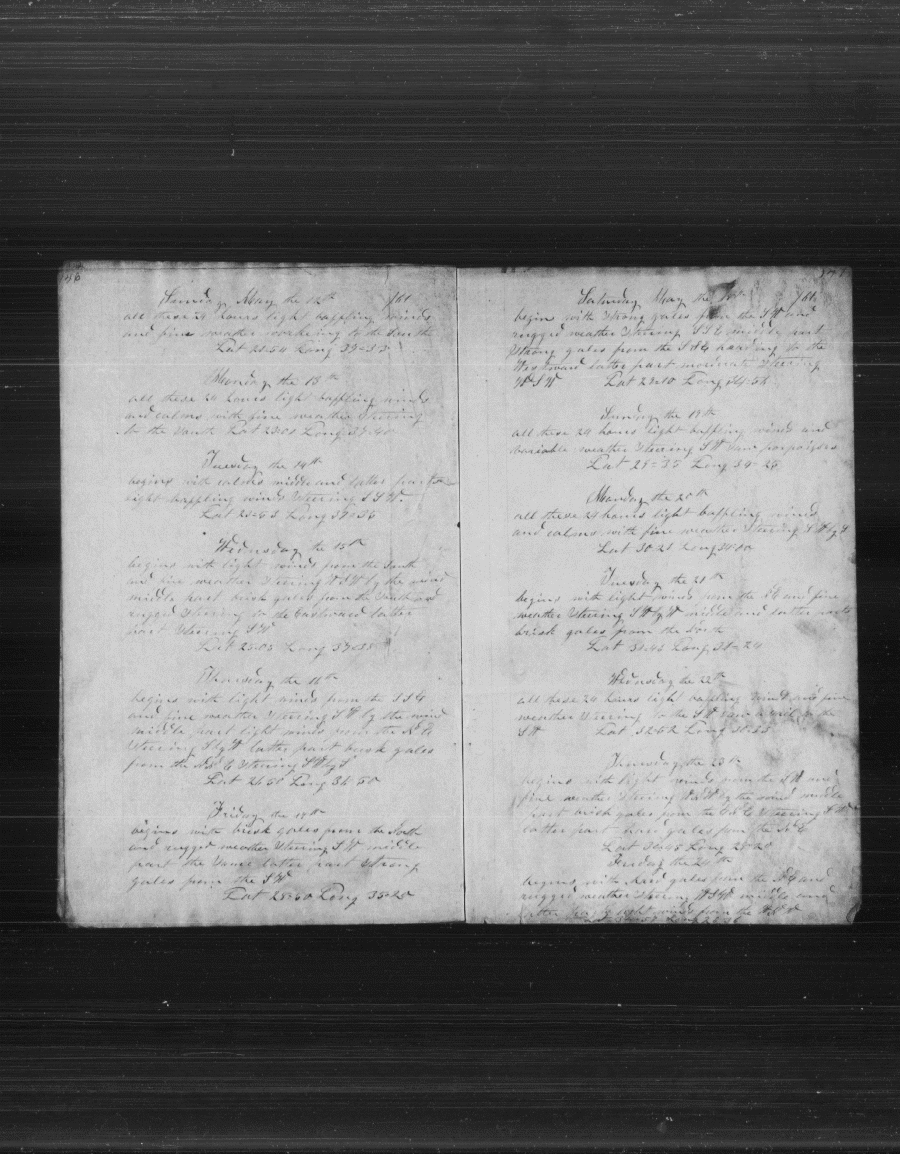 Sunday May the 12th /61
all these 24 hours light baffling winds
and fine weather working to the South
Lat Long 39-33
Monday the 13th
all these 24 hours light baffling winds
and calms with fine weather Steering
to the South Lat 23-01 Long 39-40
Tuesday the 14th
begins with calms middle and latter part
light baffling winds Steering S S W.
Lat 23-53 Long 39-36
Wednesday the 15th
begins with light winds from the South
and fine weather Steering W S W by the wind
middle part brisk gales from the South and
rugged Steering to the Eastward latter
part Steering S W
Lat 25-05 Long 39-35
Thursday the 16th
begins with light winds from the S S E
and fine weather Steering S W by the wind
middle part light winds from the N E
Steering S by W latter part brisk gales
from the N E Steering S W by S
Lat 26-50 Long 36-50
Friday the 17th
begins with brisk gales from the North
and rugged weather Steering S W middle
part the Same latter part Strong
gales from the S W
Lat Long 35-20
Saturday May the 18th /61
begins with Strong gales from the S W and
rugged weather Steering S S E middle part
Strong gales from the S S E hauling to the
Westward latter part moderate Steering
W S W Lat Long 34-56
Sunday the 19th
all these 24 hours light baffling winds and
variable weather Steering S W saw porpoises
Lat 29-35 Long 34-26
Monday the 20th
all these 24 hours light baffling winds
and calms with fine weather Steering S W by S
Lat 30-21 Long
Tuesday the 21st
begins with light winds from the N E and fine
weather Steering S W by W middle and latter parts
brisk gales from the North
Lat 31-43 Long 31-24
Wednesday the 22nd
all these 24 hours light baffling winds and fine
weather Steering to the S W
S W Lat 32-52 Long
Thursday the 23rd
begins with light winds from the S W and
fine weather Steering by the wind middle
part brisk gales from the N E Steering S W
latter part hard gales from the N E
Lat 34-45 Long 29-20
Friday the 24th
begins with hard gales from the N E and
rugged weather Steering W S W middle and
latter part light winds from the